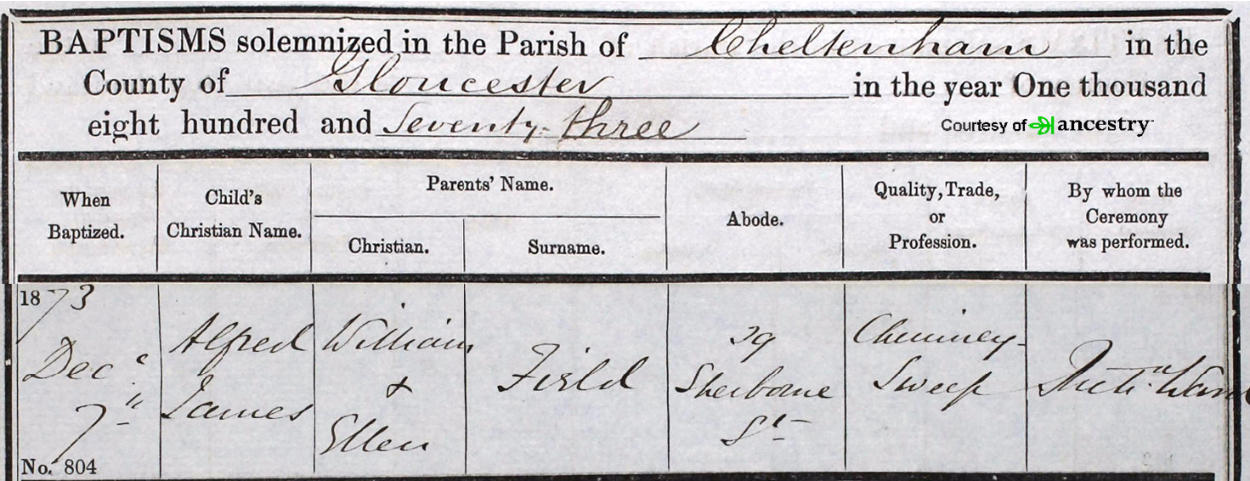 BAPTISMS solemnized in the Parish of Cheltenham in the
County of Gloucester in the year One thousand
eight hundred and Seventy-three
Courtesy of ancestry
When Baptized.
Child's Christian Name.
Parents' Name.
Christian.
Surname.
Abode.
Quality, Trade, or Profession.
By whom the Ceremony was performed.
1873
Decr
7th
No. 804
Alfred
James
William
&
Ellen
Field
29
Sherborne
St
Chimney-
Sweep